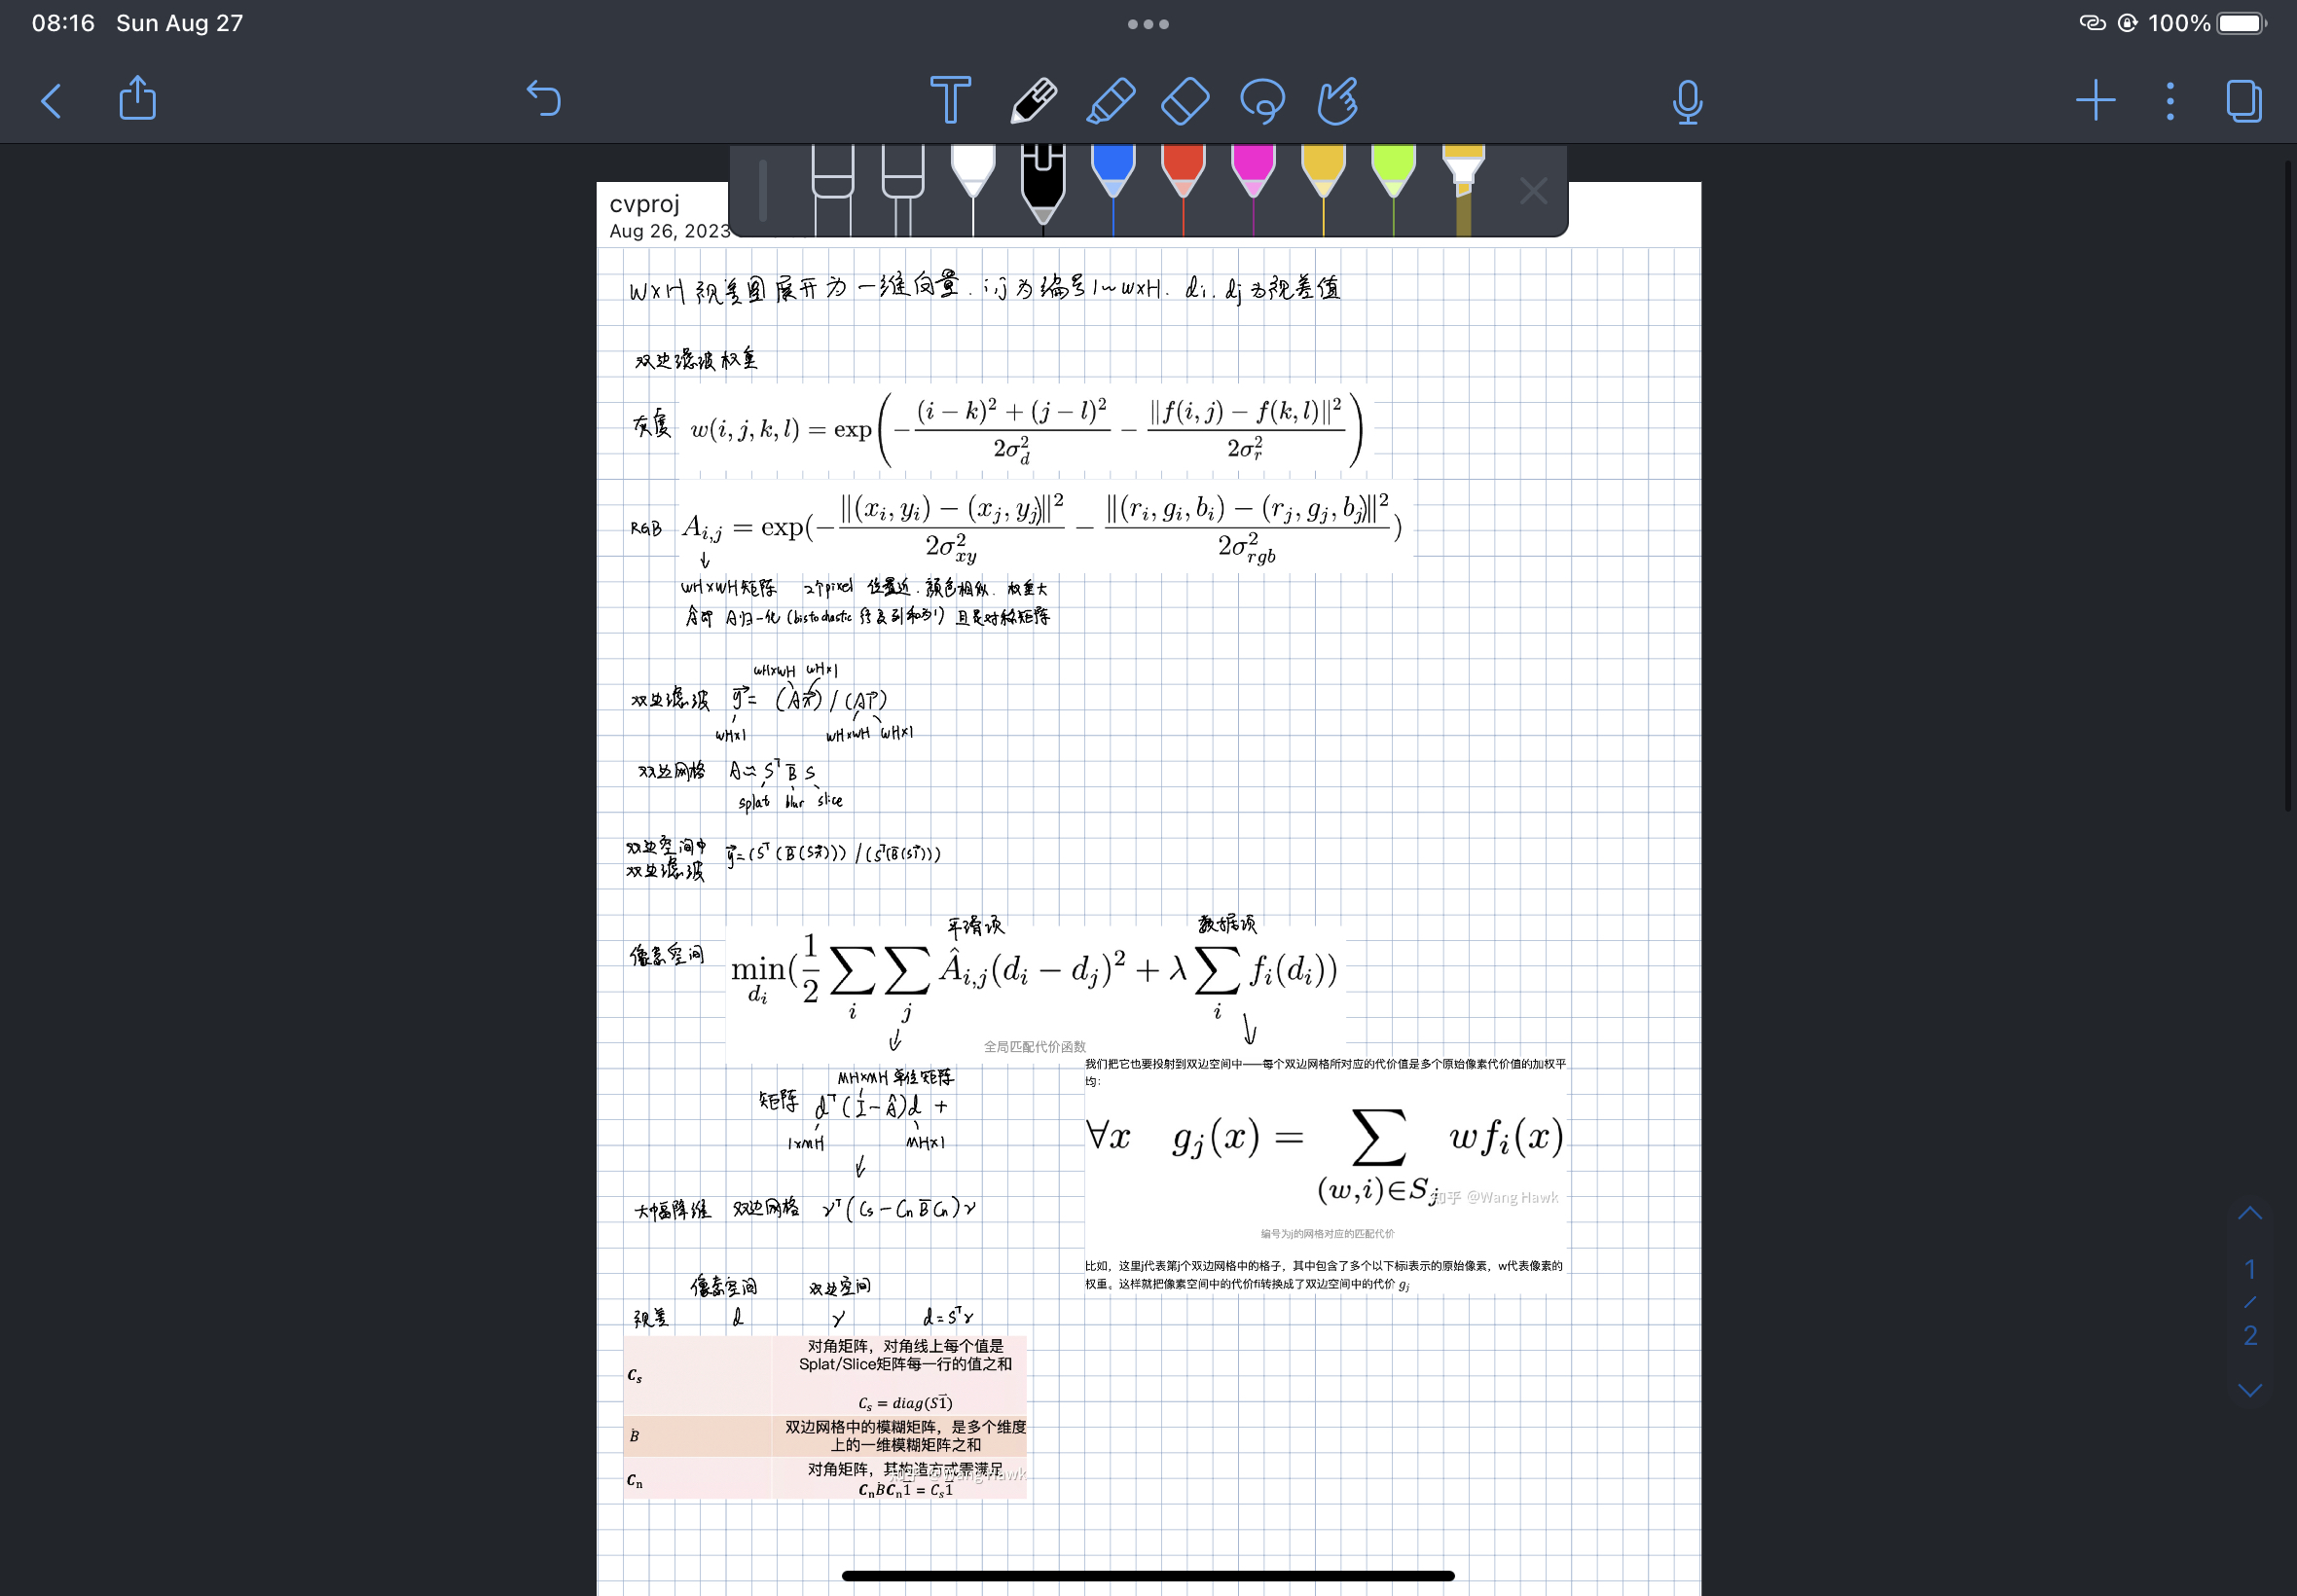 08:16 Sun Aug 27
100%
cvproj
Aug 26, 2023
W×H 视差图展开为一维向量. i,j 为编号 1~w×H. di. dj 为视差值
双边滤波权重
灰度 w(i, j, k, l) = exp(−((i − k)² + (j − l)²)/(2σ_d²) − ‖f(i, j) − f(k, l)‖²/(2σ_r²))
RGB A_{i,j} = exp(−‖(x_i, y_i) − (x_j, y_j)‖²/(2σ_{xy}²) − ‖(r_i, g_i, b_i) − (r_j, g_j, b_j)‖²/(2σ_{rgb}²))
↓
WH×WH矩阵 2个pixel 位置近. 颜色相似. 权重大
Â即 A归一化 (bistochastic 行及列和为1) 且是对称矩阵
WH×WH WH×1
双边滤波 y⃗ = (Ax⃗) / (A1⃗)
WH×1 WH×WH WH×1
双边网格 A ≈ Sᵀ B̅ S
splat blur slice
双边空间中 y⃗ = (Sᵀ(B̅(Sx⃗))) / (Sᵀ(B̅(S1⃗)))
双边滤波
平滑项 数据项
像素空间 min_{d_i}(1/2 ∑_i ∑_j Â_{i,j}(d_i − d_j)² + λ ∑_i f_i(d_i))
↓ ↓
全局匹配代价函数
我们把它也要投射到双边空间中——每个双边网格所对应的代价值是多个原始像素代价值的加权平
均：
MH×MH 单位矩阵
矩阵 dᵀ(I − Â)d +
1×MH MH×1
↓
∀x g_j(x) = ∑_{(w,i)∈S_j} w f_i(x)
知乎 @Wang Hawk
大幅降维 双边网格 γᵀ(Cs − Cn B̅ Cn)γ
编号为j的网格对应的匹配代价
比如，这里j代表第j个双边网格中的格子，其中包含了多个以下标i表示的原始像素，w代表像素的
权重。这样就把像素空间中的代价fi转换成了双边空间中的代价 g_j
像素空间 双边空间
视差 d γ d = Sᵀγ
C_s
对角矩阵，对角线上每个值是
Splat/Slice矩阵每一行的值之和
C_s = diag(S1⃗)
B̅
双边网格中的模糊矩阵，是多个维度
上的一维模糊矩阵之和
C_n
对角矩阵，其构造方式需满足
C_n B̅ C_n 1⃗ = C_s 1⃗
知乎 @Wang Hawk
1
/
2